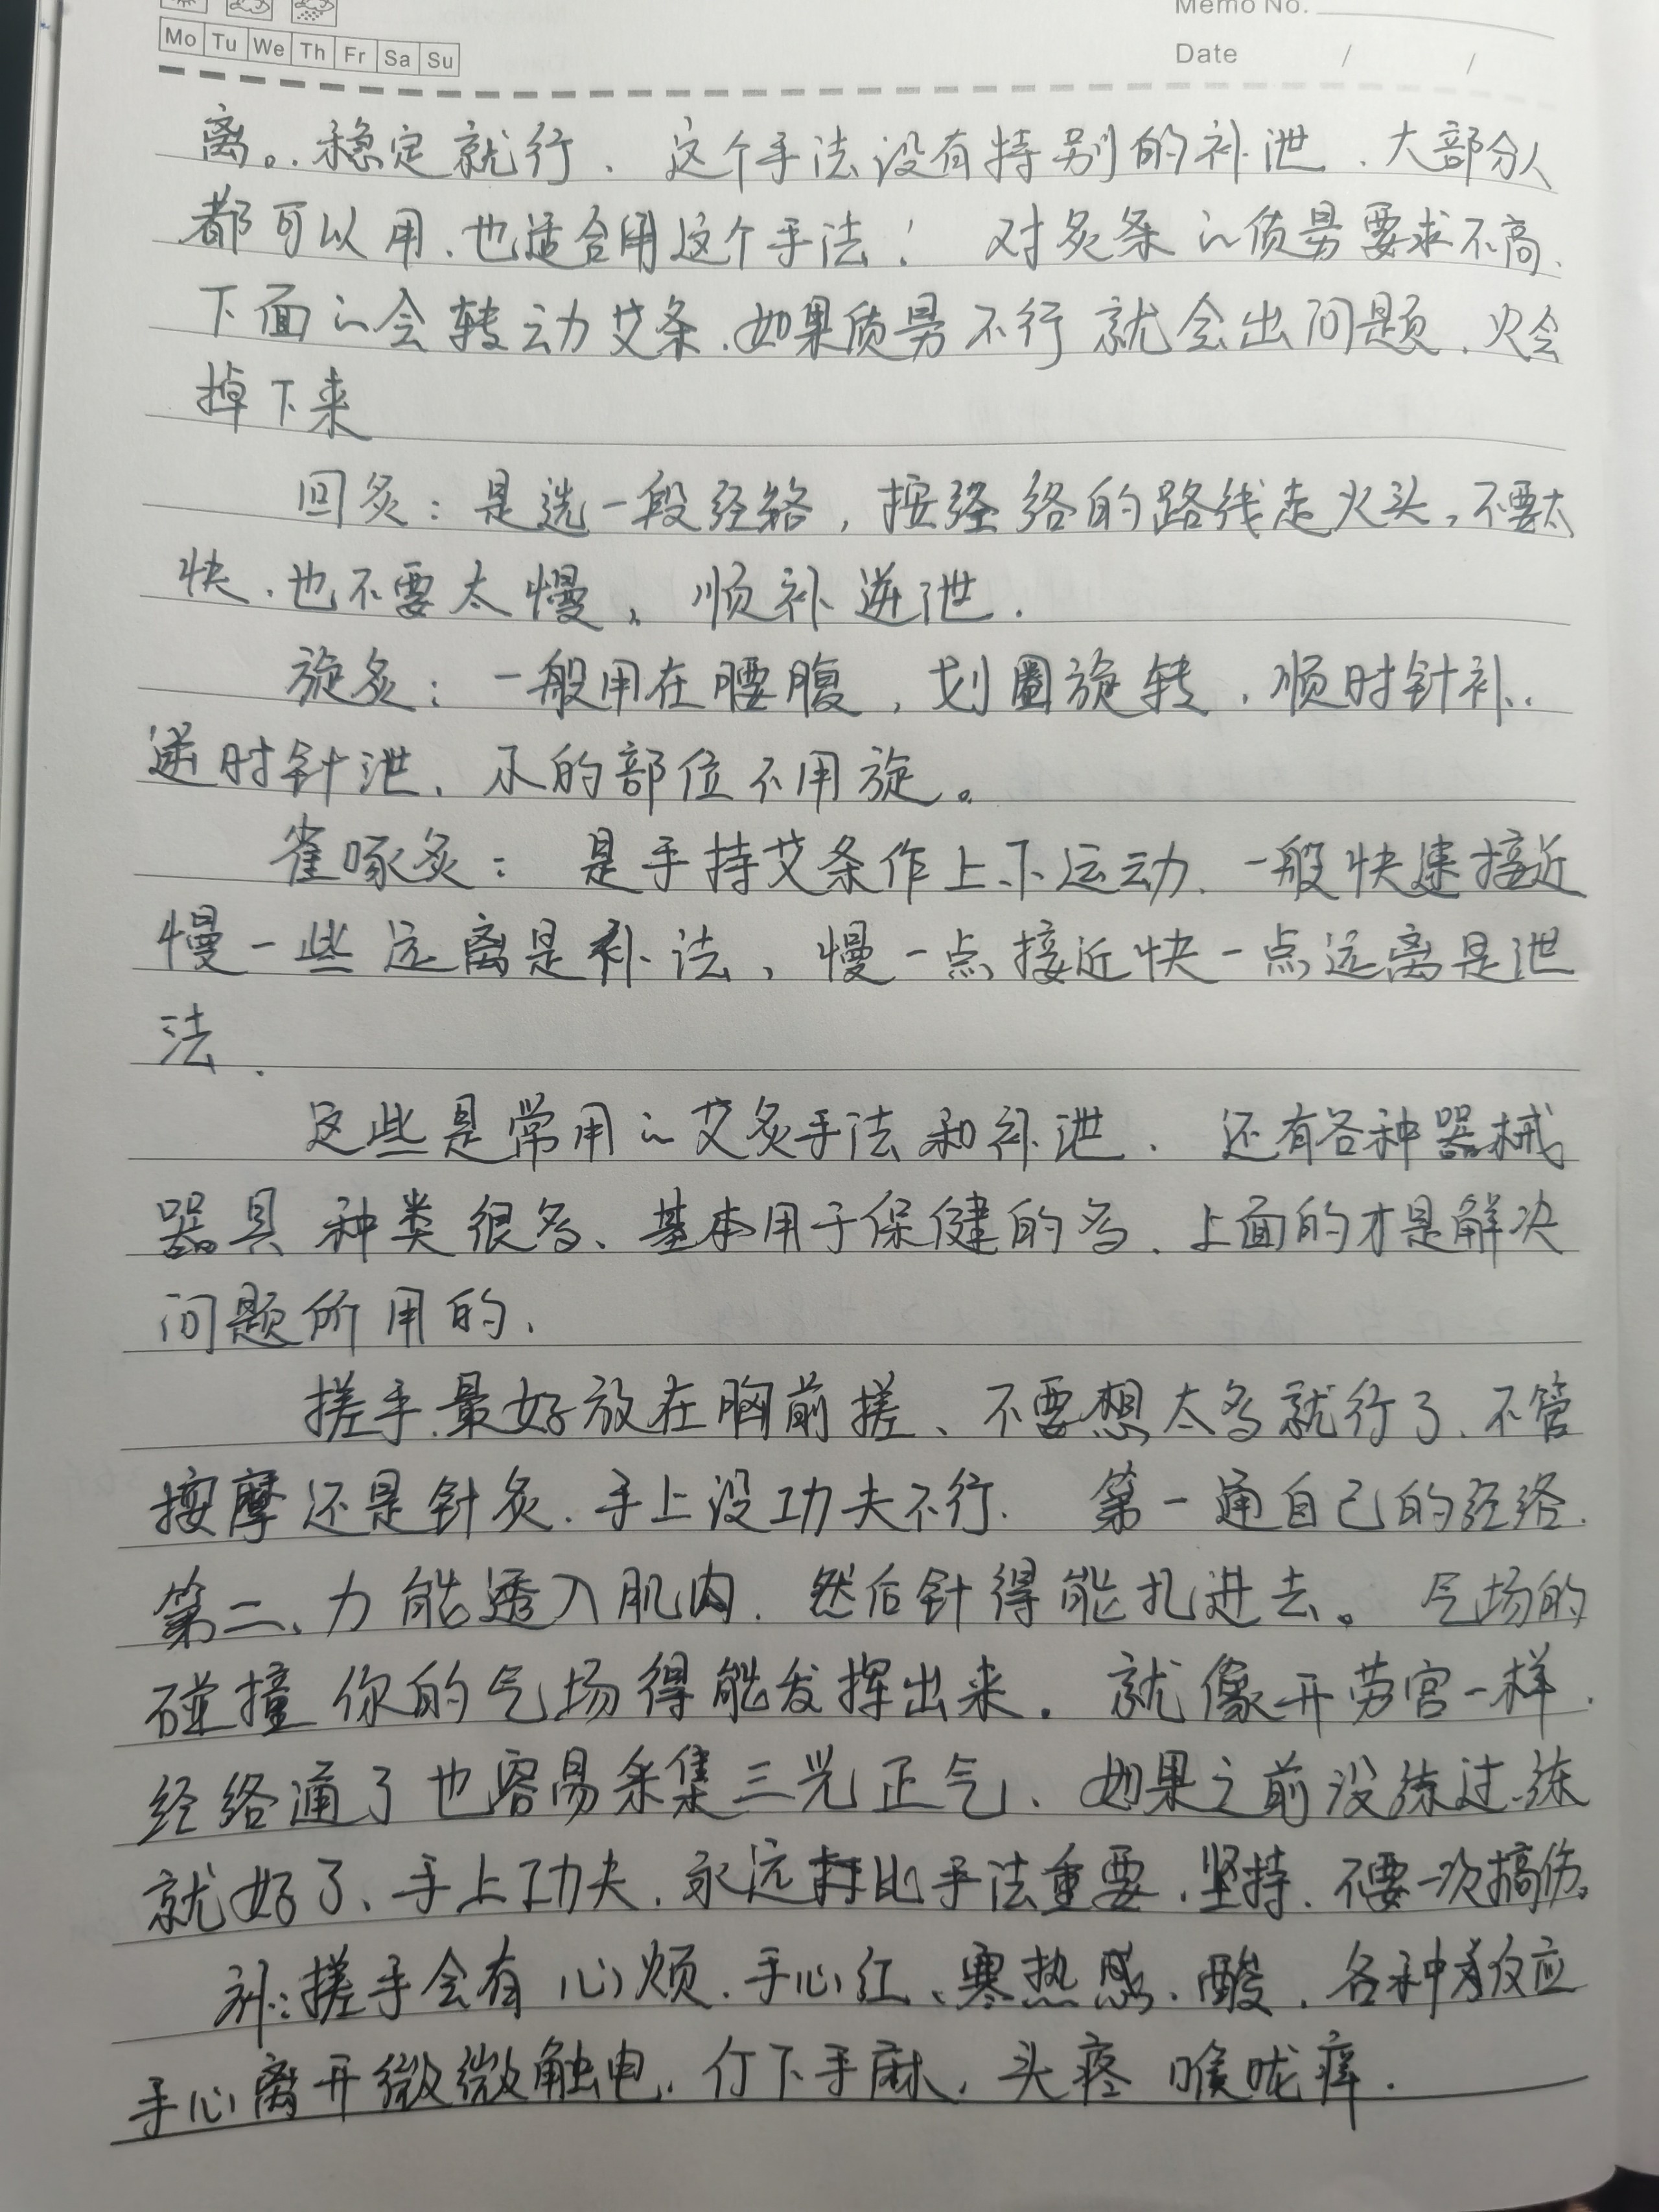 Memo No.
Mo Tu We Th Fr Sa Su
Date / /
离。.稳定就行、这个手法没有特别的补泄、大部分人
都可以用、也适合用这个手法！对灸条的质量要求不高、
下面的会转动艾条、如果质量不行就会出问题、火会
掉下来
回灸：是选一段经络，按经络的路线走火头，不要太
快、也不要太慢、顺补逆泄.
旋灸：一般用在腰腹，划圈旋转，顺时针补.
逆时针泄、的部位不用旋。
雀啄灸：是手持艾条作上下运动、一般快速接近
慢一些远离是补法、慢一点接近快一点远离是泄
法.
这些是常用的艾灸手法和补泄. 还有各种器械
器具种类很多、基本用于保健的多、上面的才是解决
问题所用的、
搓手最好放在胸前搓、不要想太多就行了、不管
按摩还是针灸、手上没功夫不行. 第一通自己的经络.
第二、力能透入肌肉. 然后针得能扎进去。气场的
碰撞你的气场得能发挥出来. 就像开劳宫一样.
经络通了也容易采集三光正气、如果之前没练过.练
就好了、手上功夫、永远比手法重要、坚持、不要一次搞伤。
补:搓手会有心烦、手心红、寒热感、酸、各种反应
手心离开微微触电、下手麻、头疼 喉咙痒.